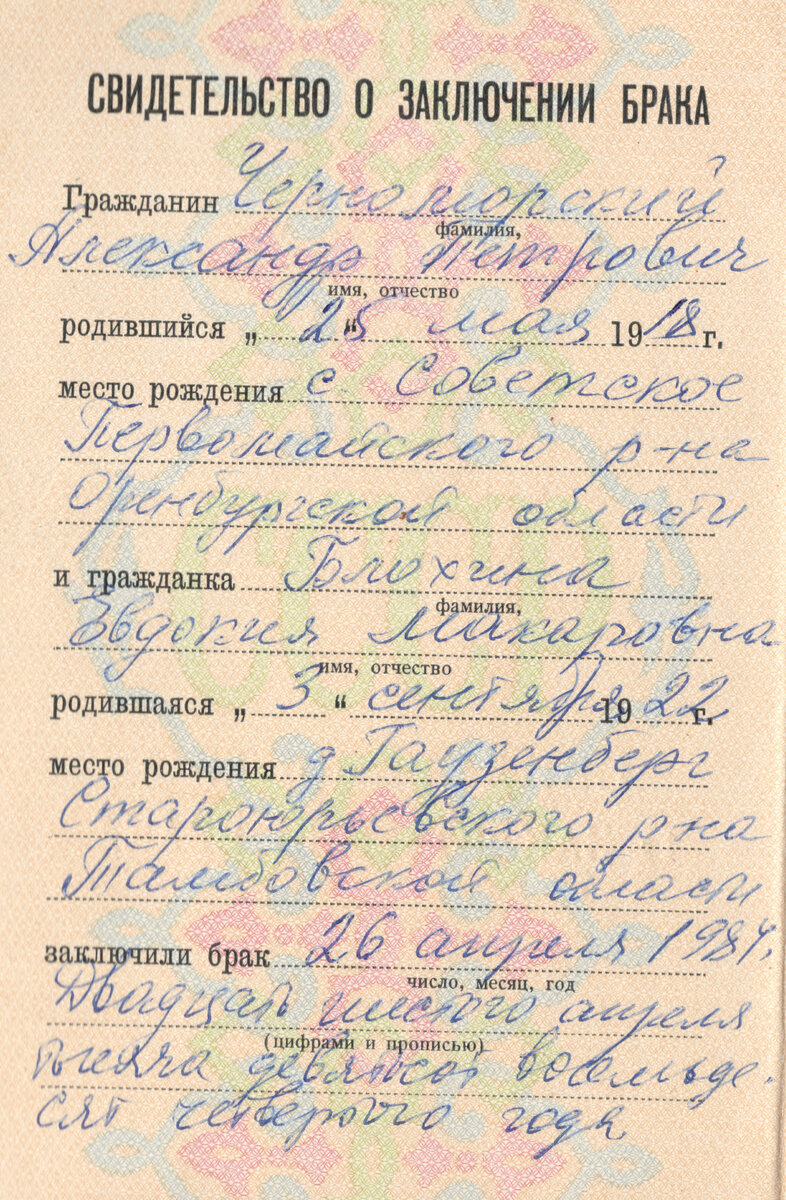 СВИДЕТЕЛЬСТВО О ЗАКЛЮЧЕНИИ БРАКА
Гражданин Черноморский
фамилия,
Александр Петрович
имя, отчество
родившийся „ 25 “ мая 1918 г.
место рождения с Советское
Первомайского р-на
Оренбургской области
и гражданка Блохина
фамилия,
Евдокия Макаровна
имя, отчество
родившаяся „ 3 “ сентября 1922 г.
место рождения д Гаузенберг
Староюрьевского р-на
Тамбовской области
заключили брак 26 апреля 1984.
число, месяц, год
Двадцать шестого апреля
(цифрами и прописью)
тысяча девятсот восемьде-
сят четвертого года